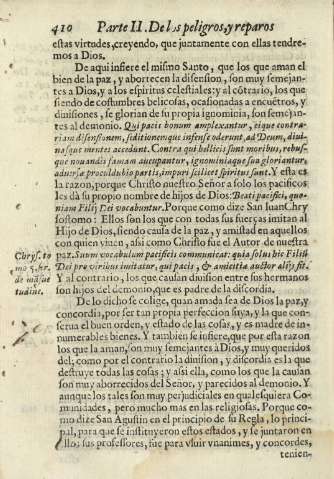 410 Parte II. De los peligros, y reparos
estas virtudes, creyendo, que juntamente con ellas tendre-
mos a Dios.
De aqui infiere el mismo Santo, que los que aman el
bien de la paz, y aborrecen la disension, son muy semejan-
tes a Dios, y a los espiritus celestiales: y al cõtrario, los que
siendo de costumbres belicosas, ocasionadas a encuẽtros, y
diuisiones, se glorian de su propia ignominia, son semejan-
tes al demonio. Qui pacis bonum amplexantur, eique contra-
riam disensionem, seditionemque infense oderunt, ad Deum, diui-
nasque mentes accedunt. Contra qui bellicis sunt moribus, rebus-
que nouandis famam aucupantur, ignominiaque sua gloriantur,
aduersæ proculdubio partis, impuri scilicet spiritus sunt. Y esta es
la razon, porque Christo nuestro Señor a solo los pacificos
les dà su propio nombre de hijos de Dios: Beati pacifici, quo-
niam Filij Dei vocabuntur. Porque como dize San Iuan Chry
sostomo: Ellos son los que con todas sus fuerças imitan al
Hijo de Dios, siendo causa de la paz, y amistad en aquellos
con quien viuen, assi como Christo fue el Autor de nuestra
paz. Suum vocabulum pacificis communicat: quia solus hic Filius
Dei pro viribus imitatur, qui pacis, & amicitiæ auctor alijs fit.
Y al contrario, los que causan diuision entre sus hermanos
son hijos del demonio, que es padre de la discordia.
Chrys. to
mo 5. hr.
de mãsue
tudine.
De lo dicho se colige, quan amada sea de Dios la paz, y
concordia, por ser tan propia perfeccion suya, y la que con-
serua el buen orden, y estado de las cosas, y es madre de in-
numerables bienes. Y tambien se infiere, que por esta razon
los que la aman, son muy semejantes à Dios, y muy queridos
del; como por el contrario la diuision, y discordia es la que
destruye todas las cosas; y assi ella, como los que la causan
son muy aborrecidos del Señor, y parecidos al demonio. Y
aunque los tales son muy perjudiciales en qualesquiera Co-
munidades, pero mucho mas en las religiosas. Porque co-
mo dize San Agustin en el principio de su Regla, lo princi-
pal, para que se instituyeron estos estados, y se juntaron en
ello; sus professores, fue para viuir vnanimes, y concordes,
tenien-